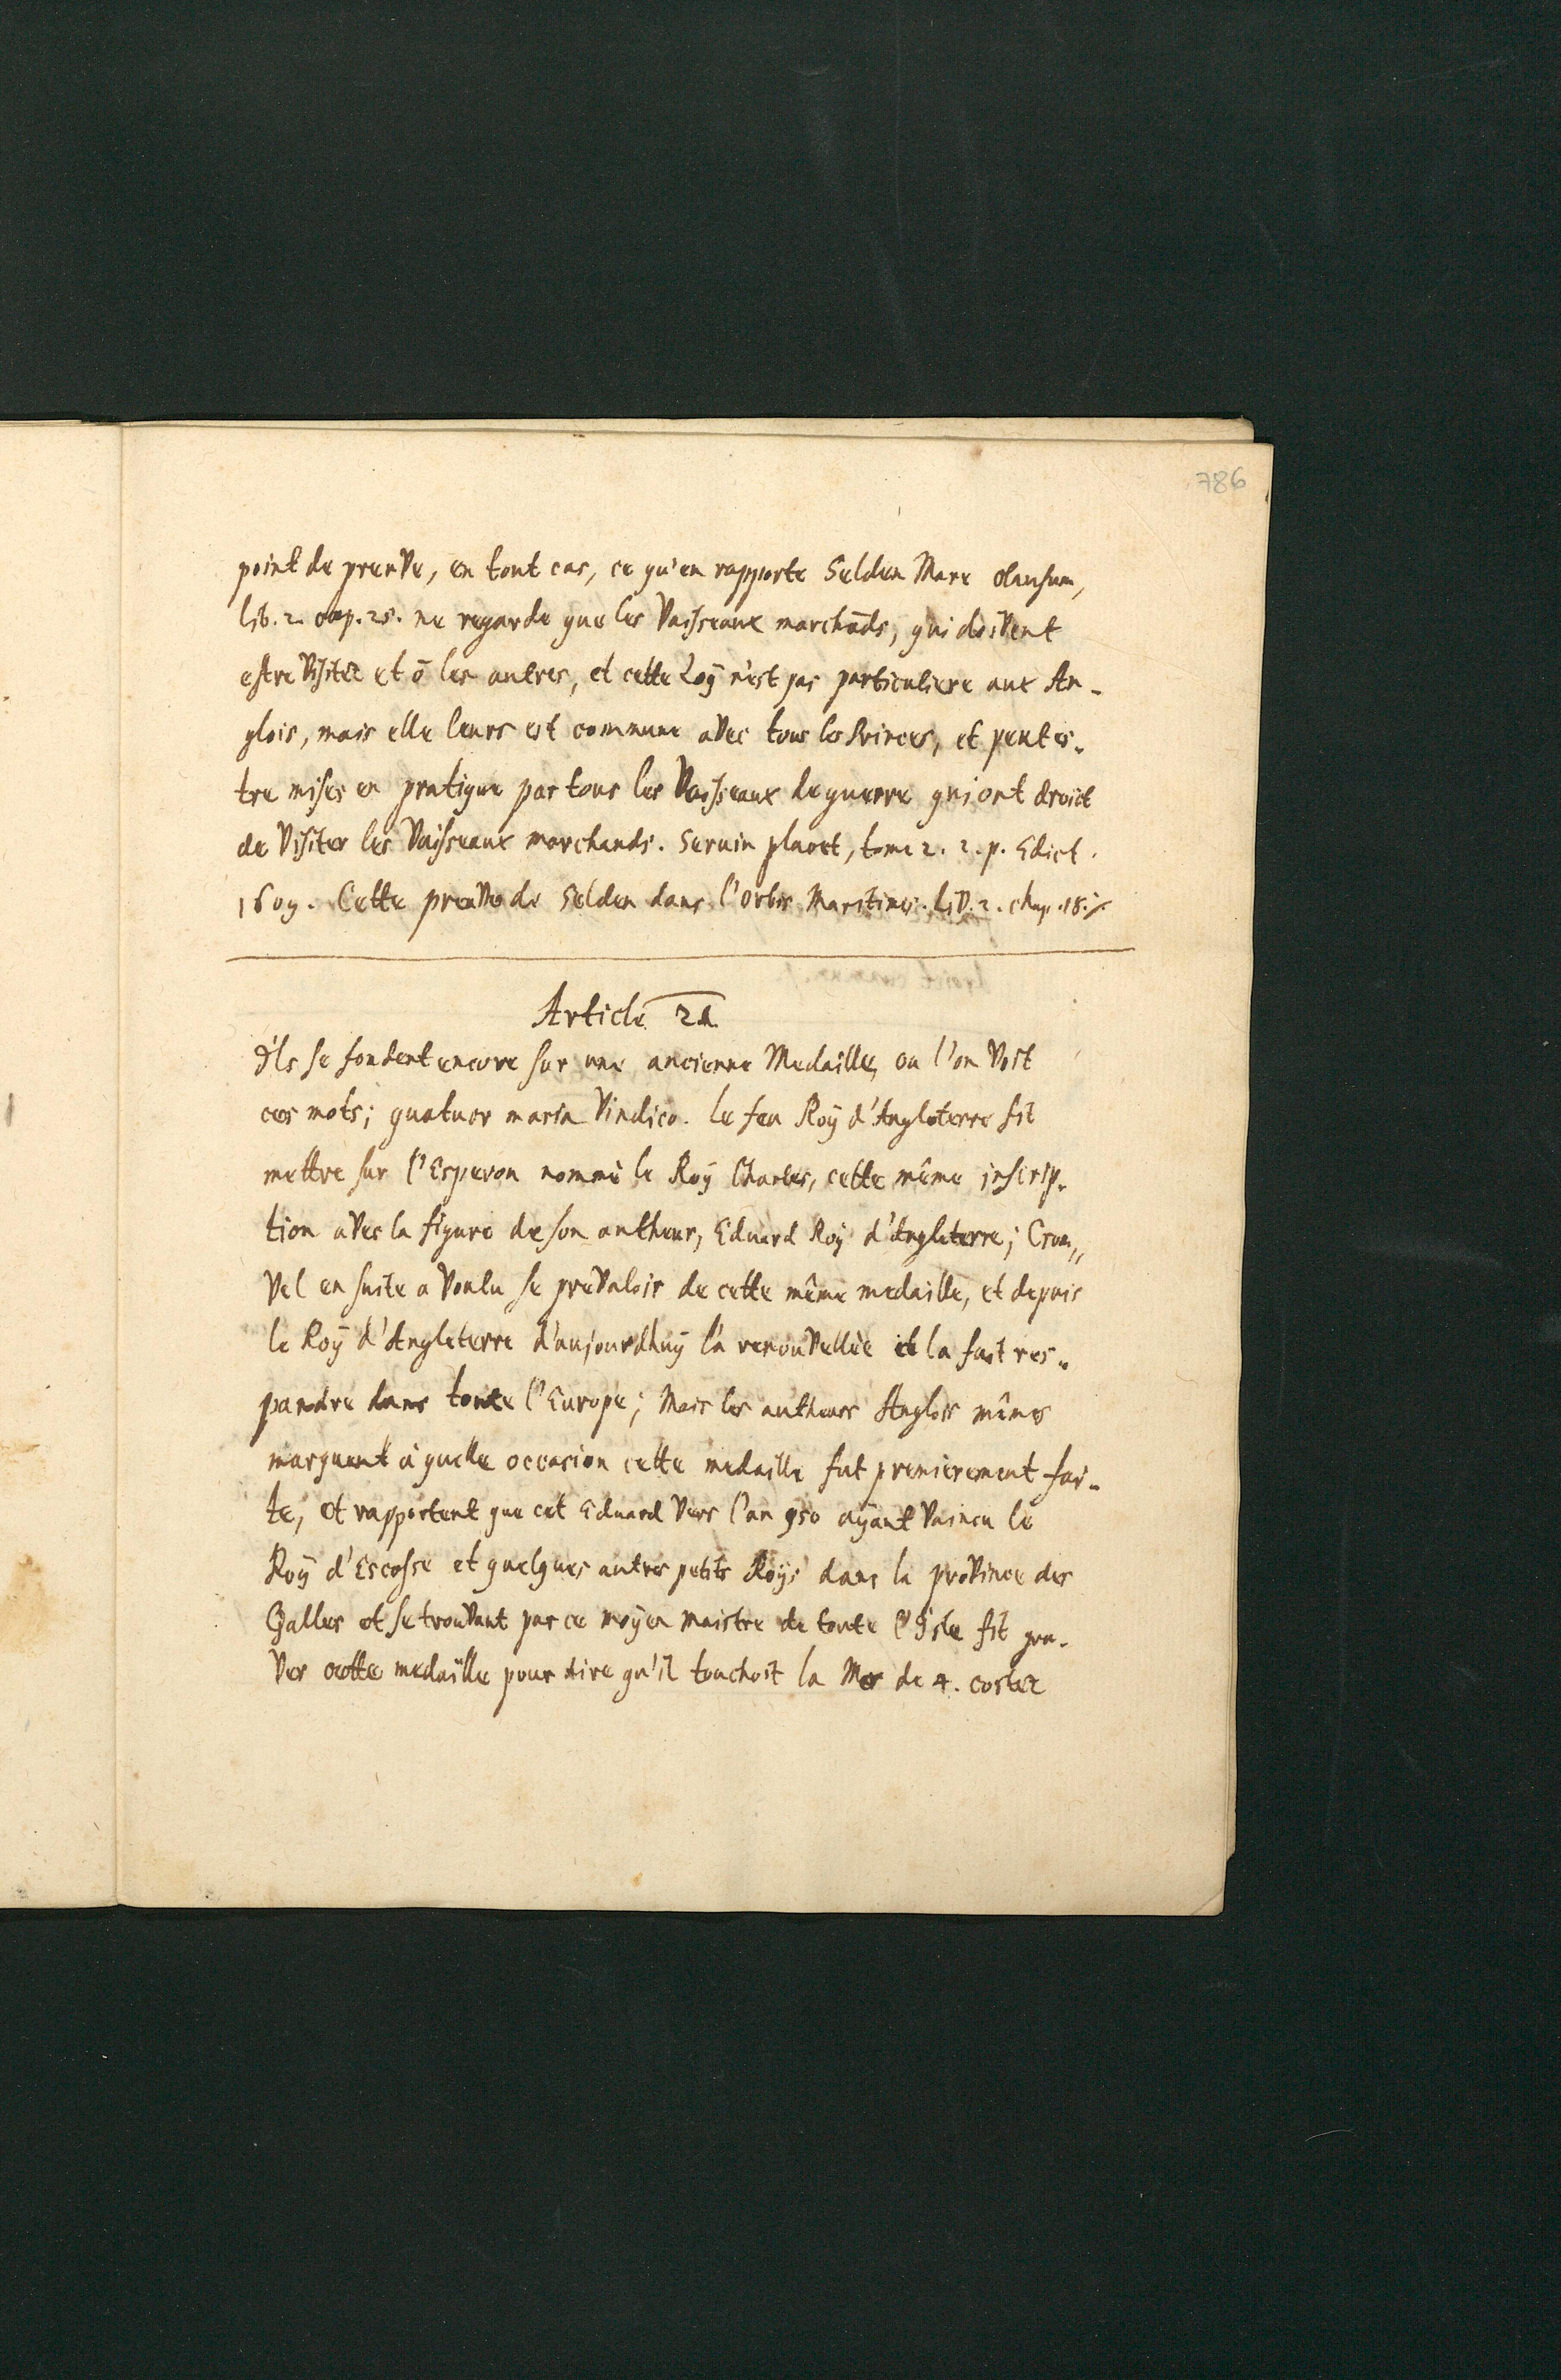 786
point de preuVe, en tout cas, ce qu'en rapporte Selden Mare clausum,
lib. 2. cap. 25. ne regarde que les Vaisseaux marchāds, qui doiVent
estre Visitéz et ō les autres, et cette Loÿ n'est pas particuliere aux An-
glois, mais elle leurs est commune aVec tous les Princes, et peut es-
tre mises en pratique par tous les Vaisseaux de guerre qui ont droict
de Visiter les Vaisseaux marchands. Seruin , tome 2. 2. p. Edict.
1609. Cette preuVe de Selden dans l'Orbis Maritimis. LiV. 2. chap. 18./.
Article 21.
Ils se fondent encore sur une ancienne Medaille, ou l'on Voit
ces mots; quatuor maria Vindico. Le feu Roÿ d'Angleterre fit
mettre sur l'Esperon nommé le Roÿ Charles, cette même inscrip-
tion aVec la figure de son autheur, Eduard Roÿ d'Angleterre; Crom„
Vel en suite a Voulu se preValoir de cette même medaille, et depuis
le Roÿ d'Angleterre d'aujourdhuÿ l'a renouVellée et la fait res-
pandre dans toute l'Europe; Mais les autheurs Anglois mêmes
marquent à quelle occasion cette medaille fut premierement fai-
te, et rapportent que cet Eduard Vers l'an 950 aÿant Vaincu le
Roÿ d'Escosse et quelques autres petits Roÿs dans la proVince des
Galles et se trouVant par ce moÿen maistre de toute l'Isle fit gra-
Ver cette medaille pour dire qu'il touchoit la Mer de 4. costez